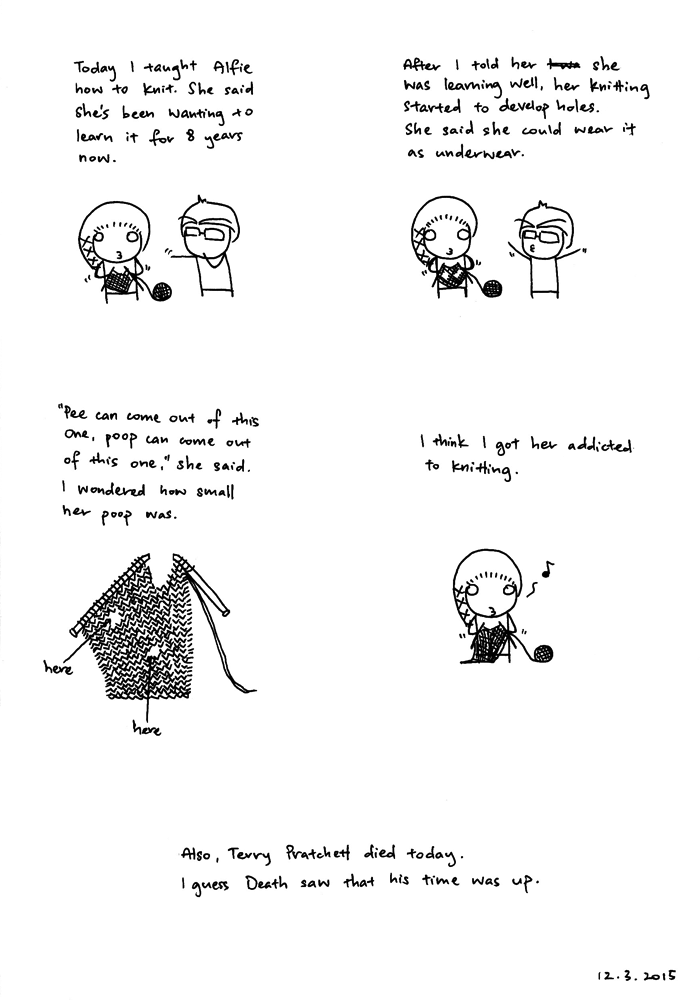 Today I taught Alfie
how to knit. She said
she's been wanting to
learn it for 8 years
now.
After I told her she
was learning well, her knitting
started to develop holes.
She said she could wear it
as underwear.
"Pee can come out of this
one, poop can come out
of this one," she said.
I wondered how small
her poop was.
here
here
I think I got her addicted
to knitting.
Also, Terry Pratchett died today.
I guess Death saw that his time was up.
12.3.2015